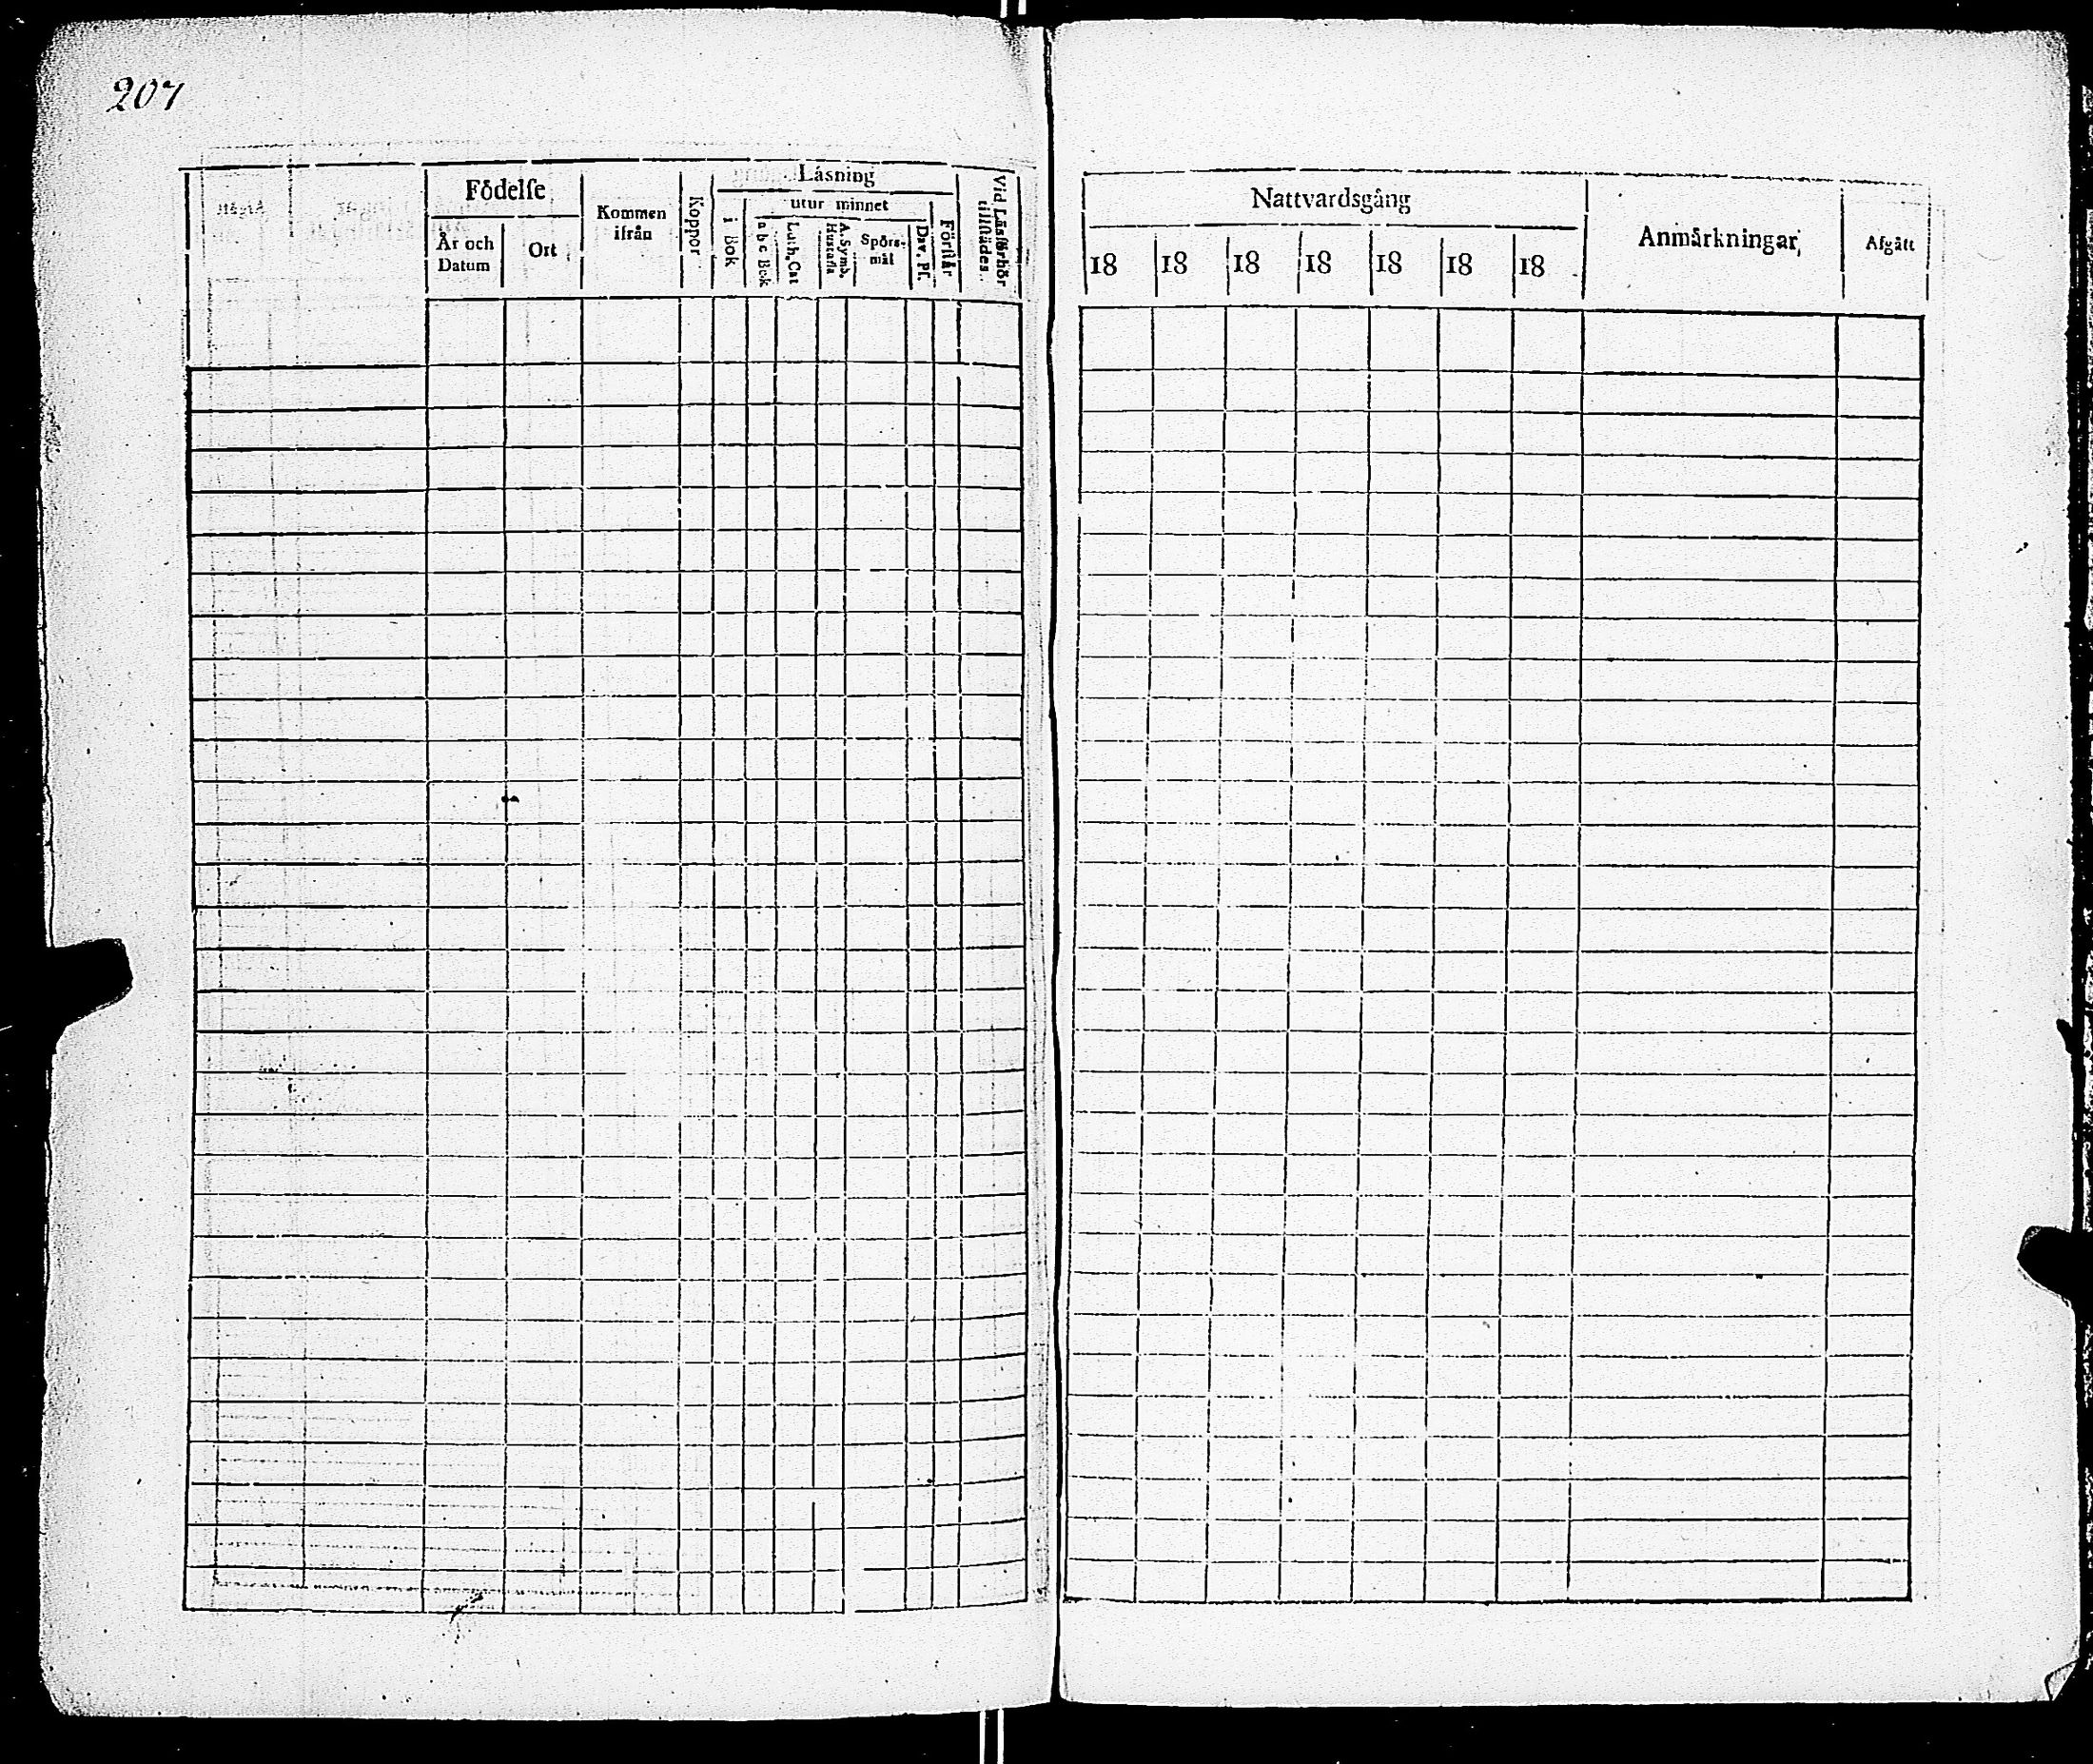 207
Födelſe
År och
Datum
Ort
Kommen
ifrån
Koppor
Läsning
i Bok
utur minnet
a b c Bok
Luth. Cat
A. Symb.
Huſtafla
Spörs-
mål
Dav. Pſ.
Förſtår
Vid Läsförhör
tillſtädes
Nattvardsgång
18 18 18 18 18 18 18
Anmärkningar,
Afgått